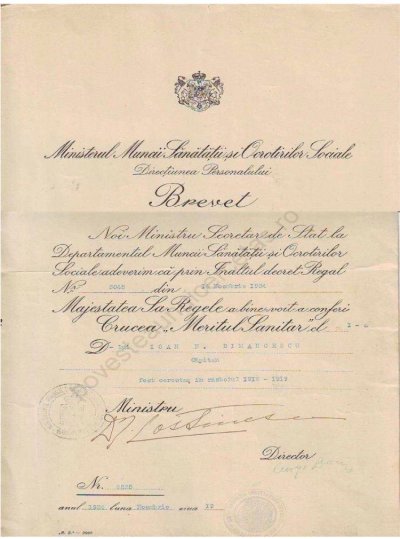 Ministerul Muncii Sănătății și Ocrotirilor Sociale
Direcțiunea Personalului
Brevet
Noi Ministru Secretar de Stat la
Departamentul Muncii Sănătății și Ocrotirilor
Sociale adeverim că prin Înaltul decret Regal
No. din 14 Noembrie 1934
Majestatea Sa Regele a bine-voit a conferi
Crucea „Meritul Sanitar" cl I-a
D-lui IOAN D. DIMANCESCU
Căpitan
Fost cercetaș în războiul 1916 - 1919
Ministru
Director
Nr.
anul 1934 luna Noembrie ziua 19